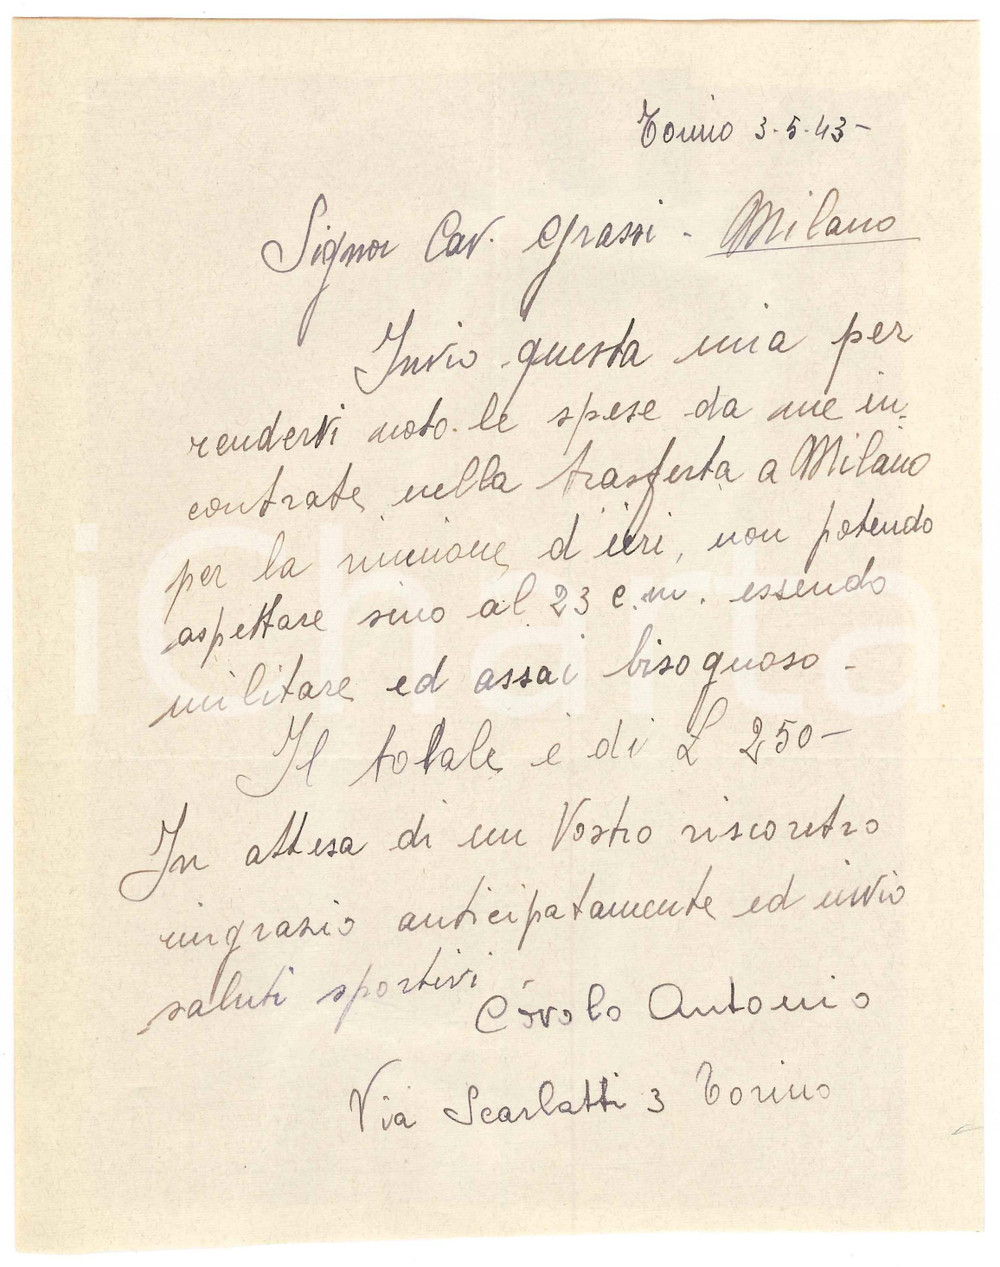 Torino 3-5-43-
Signor Cav. Grassi - Milano
Invio questa mia per
rendervi noto le spese da me in-
contrate nella trasferta a Milano
per la riunione d'ieri, non potendo
aspettare sino al 23 c.m. essendo
militare ed assai bisognoso -
Il totale è di £ 250-
In attesa di un Vostro riscontro
ringrazio anticipatamente ed invio
saluti sportivi -
Covolo Antonio
Via Scarlatti 3 Torino
iCharta